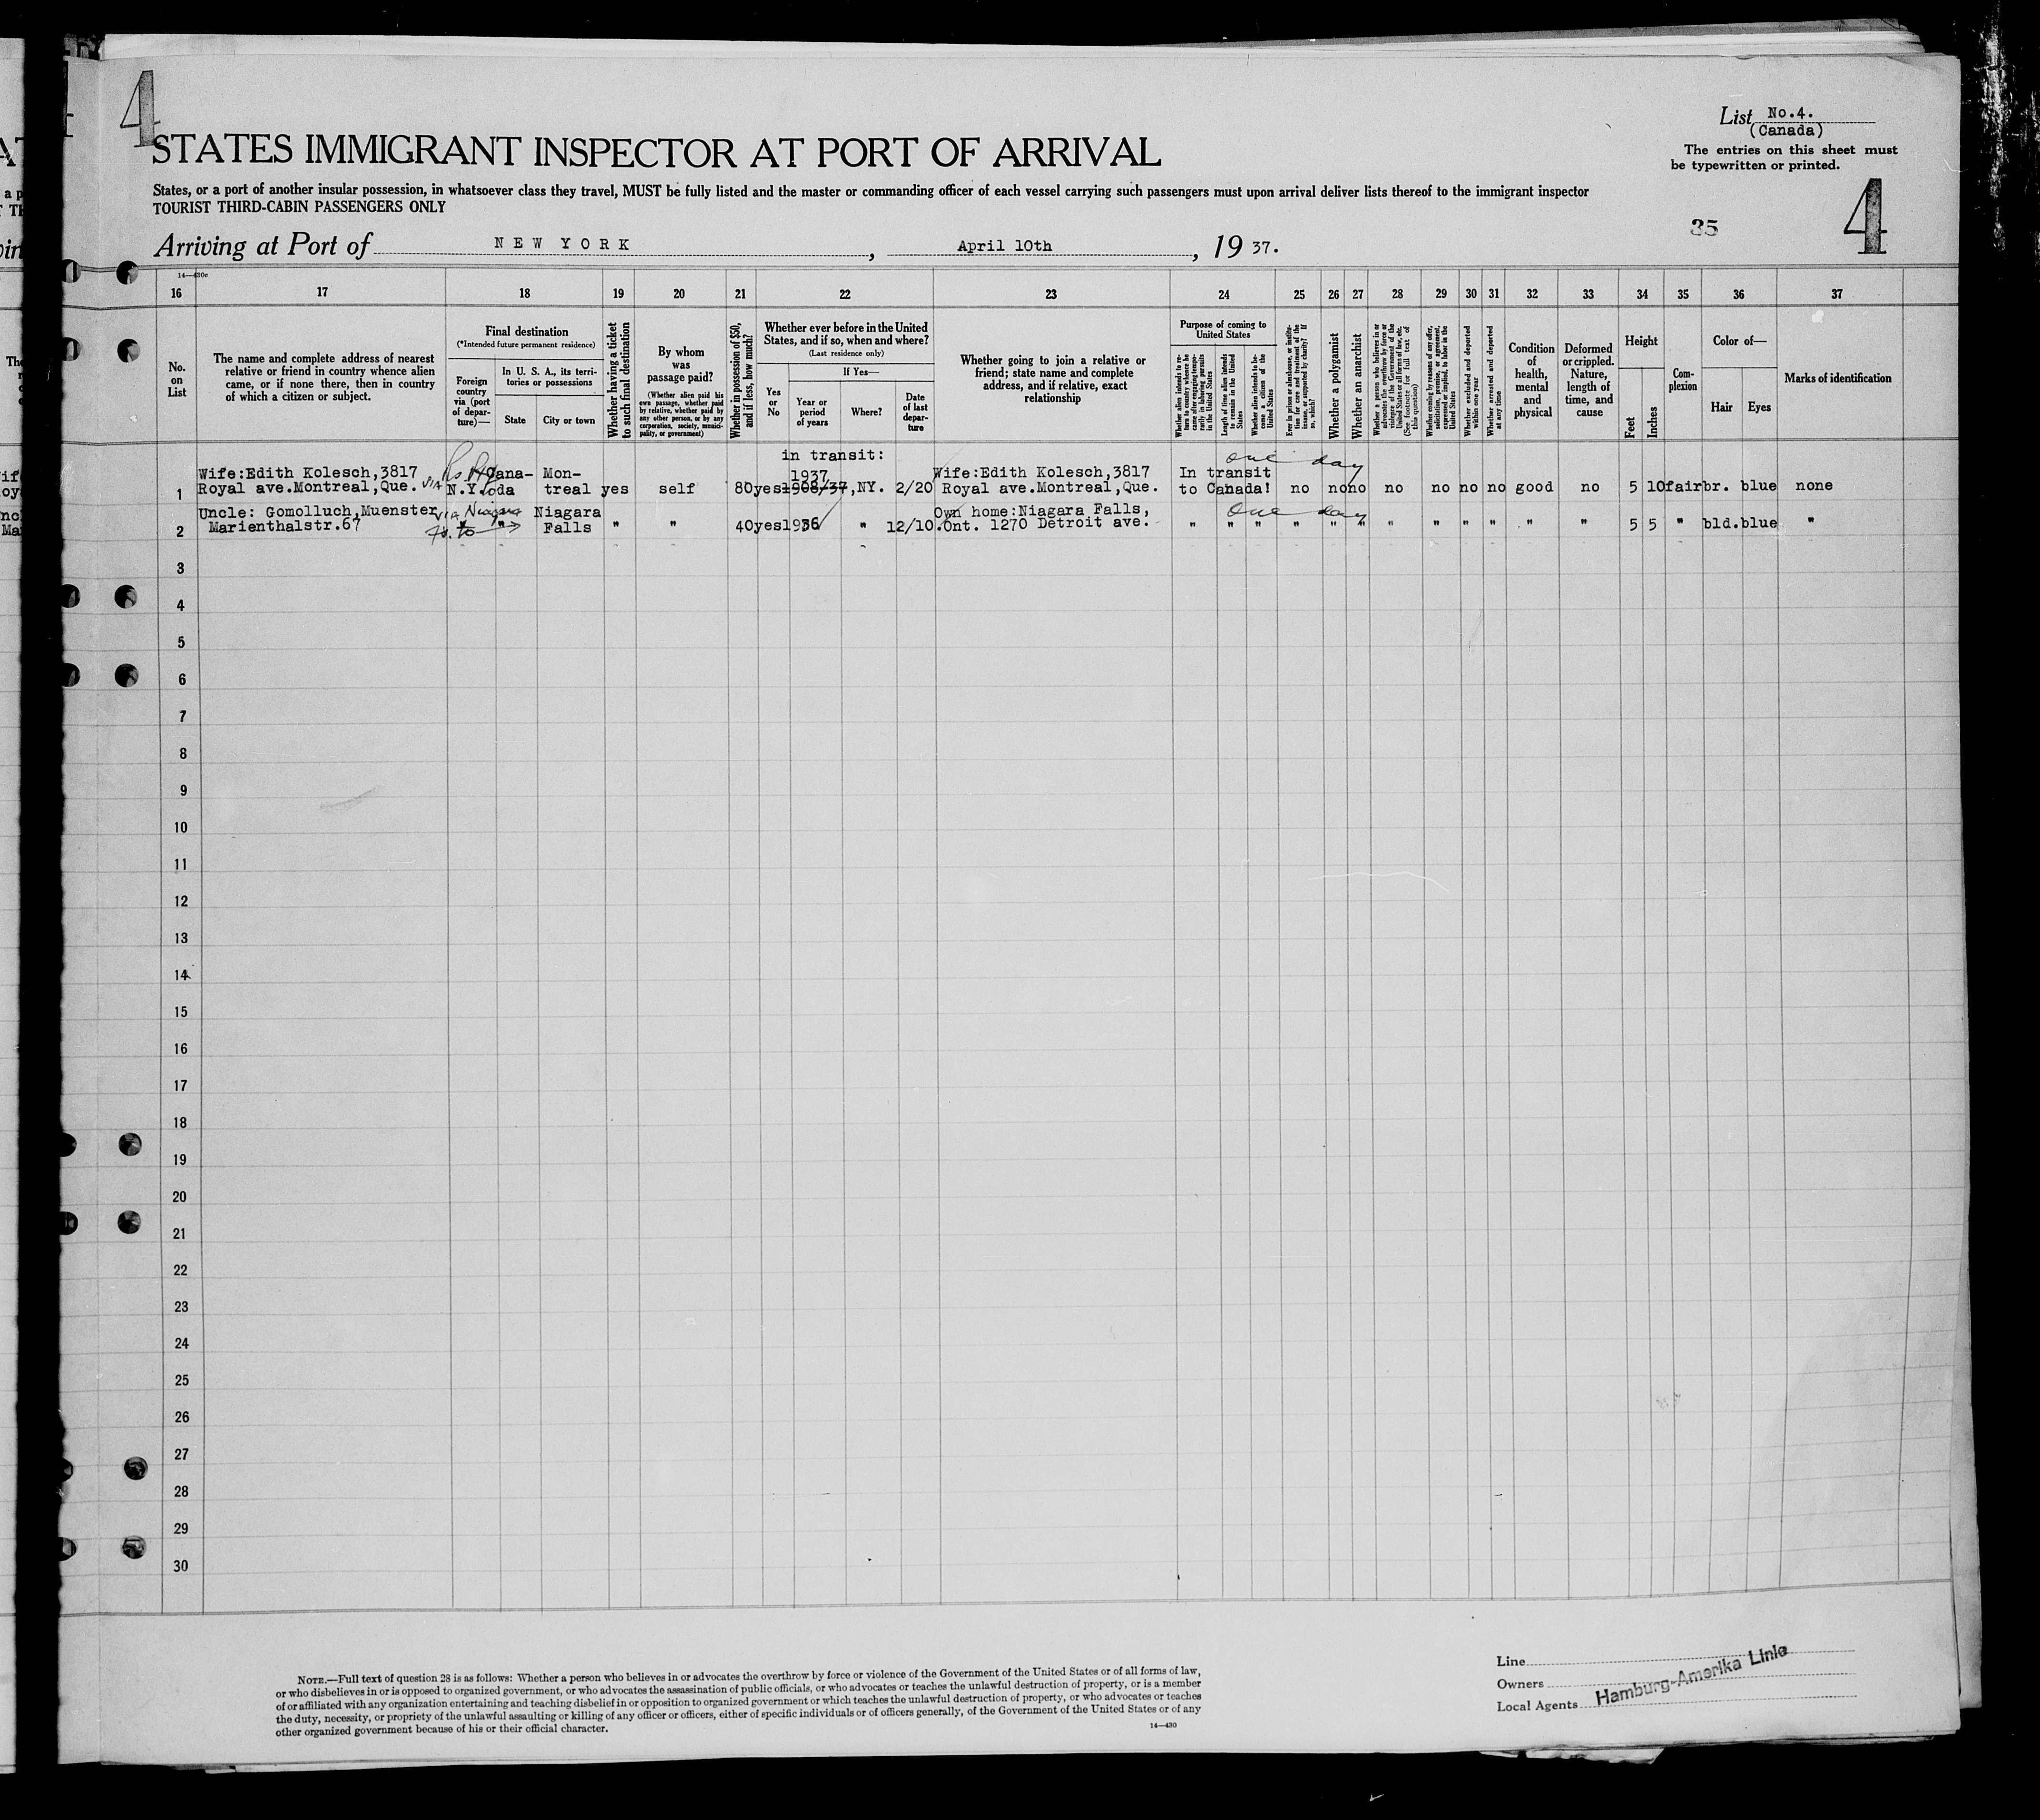 4
List No.4.
(Canada)
STATES IMMIGRANT INSPECTOR AT PORT OF ARRIVAL
The entries on this sheet must
be typewritten or printed.
States, or a port of another insular possession, in whatsoever class they travel, MUST be fully listed and the master or commanding officer of each vessel carrying such passengers must upon arrival deliver lists thereof to the immigrant inspector
TOURIST THIRD-CABIN PASSENGERS ONLY
35
4
Arriving at Port of NEW YORK, April 10th, 19 37.
14—430e
16 17 18 19 20 21 22 23 24 25 26 27 28 29 30 31 32 33 34 35 36 37
No.
on
List
The name and complete address of nearest
relative or friend in country whence alien
came, or if none there, then in country
of which a citizen or subject.
Final destination
(*Intended future permanent residence)
Foreign
country
via (port
of depar-
ture)—
In U. S. A., its terri-
tories or possessions
State
City or town
Whether having a ticket
to such final destination
By whom
was
passage paid?
(Whether alien paid his
own passage, whether paid
by relative, whether paid by
any other person, or by any
corporation, society, munici-
pality, or government)
Whether in possession of $50,
and if less, how much?
Whether ever before in the United
States, and if so, when and where?
(Last residence only)
Yes
or
No
If Yes—
Year or
period
of years
Where?
Date
of last
depar-
ture
Whether going to join a relative or
friend; state name and complete
address, and if relative, exact
relationship
Purpose of coming to
United States
Whether alien intends to re-
turn to country whence he
came after engaging tempo-
rarily in laboring pursuits
in the United States
Length of time alien intends
to remain in the United
States
Whether alien intends to be-
come a citizen of the
United States
Ever in prison or almshouse, or institu-
tion for care and treatment of the
insane, or supported by charity? If
so, which?
Whether a polygamist
Whether an anarchist
Whether a person who believes in or
advocates the overthrow by force or
violence of the Government of the
United States or all forms of law, etc.
(See footnote for full text of
this question)
Whether coming by reasons of any offer,
solicitation, promise, or agreement,
expressed or implied, to labor in the
United States
Whether excluded and deported
within one year
Whether arrested and deported
at any time
Condition
of
health,
mental
and
physical
Deformed
or crippled.
Nature,
length of
time, and
cause
Height
Feet
Inches
Com-
plexion
Color of—
Hair
Eyes
Marks of identification
in transit: one day
Wife:Edith Kolesch,3817 Cana- Mon- 1937 Wife:Edith Kolesch,3817 In transit
1 Royal ave.Montreal,Que. via N.Y. da treal yes self 80 yes 1908/37,NY. 2/20 Royal ave.Montreal,Que. to Canada! no no no no no no no good no 5 10 fair br. blue none
Uncle: Gomolluch,Muenster via Niagara Niagara Own home:Niagara Falls, one day
2 Marienthalstr.67 " Falls " " 40 yes 1936 " 12/10. Ont. 1270 Detroit ave. " " " " " " " " " " " " 5 5 " bld. blue "
3
4
5
6
7
8
9
10
11
12
13
14
15
16
17
18
19
20
21
22
23
24
25
26
27
28
29
30
NOTE.—Full text of question 28 is as follows: Whether a person who believes in or advocates the overthrow by force or violence of the Government of the United States or of all forms of law,
or who disbelieves in or is opposed to organized government, or who advocates the assassination of public officials, or who advocates or teaches the unlawful destruction of property, or is a member
of or affiliated with any organization entertaining and teaching disbelief in or opposition to organized government or which teaches the unlawful destruction of property, or who advocates or teaches
the duty, necessity, or propriety of the unlawful assaulting or killing of any officer or officers, either of specific individuals or of officers generally, of the Government of the United States or of any
other organized government because of his or their official character.
14—430
Line
Owners
Local Agents
Hamburg-Amerika Linie